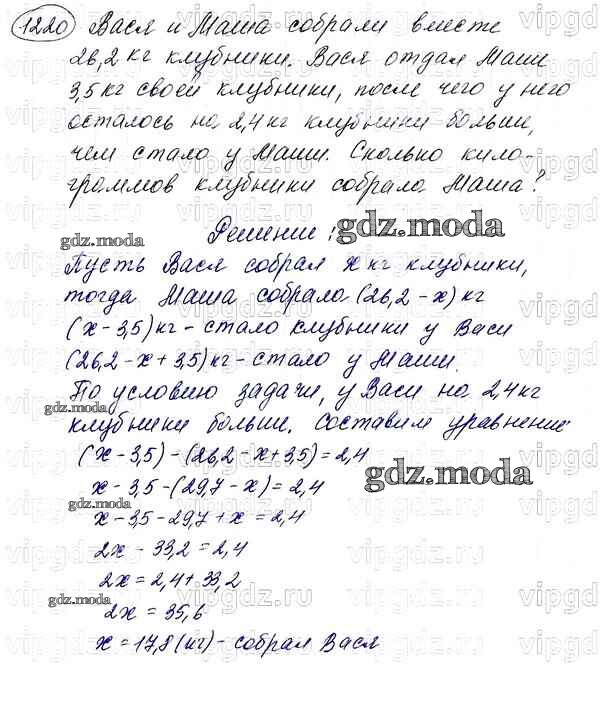 1220 Вася и Маша собрали вместе
26,2 кг клубники. Вася отдал Маше
3,5 кг своей клубники, после чего у него
осталось на 2,4 кг клубники больше,
чем стало у Маши. Сколько кило-
граммов клубники собрала Маша?
Решение:
gdz.moda
gdz.moda
Пусть Вася собрал x кг клубники,
тогда Маша собрала (26,2 - x) кг
(x - 3,5) кг - стало клубники у Васи
(26,2 - x + 3,5) кг - стало у Маши.
По условию задачи, у Васи на 2,4 кг
gdz.moda
клубники больше. Составим уравнение:
(x - 3,5) - (26,2 - x + 3,5) = 2,4
gdz.moda
x - 3,5 - (29,7 - x) = 2,4
gdz.moda
x - 3,5 - 29,7 + x = 2,4
2x - 33,2 = 2,4
2x = 2,4 + 33,2
gdz.moda
2x = 35,6
x = 17,8 (кг) - собрал Вася